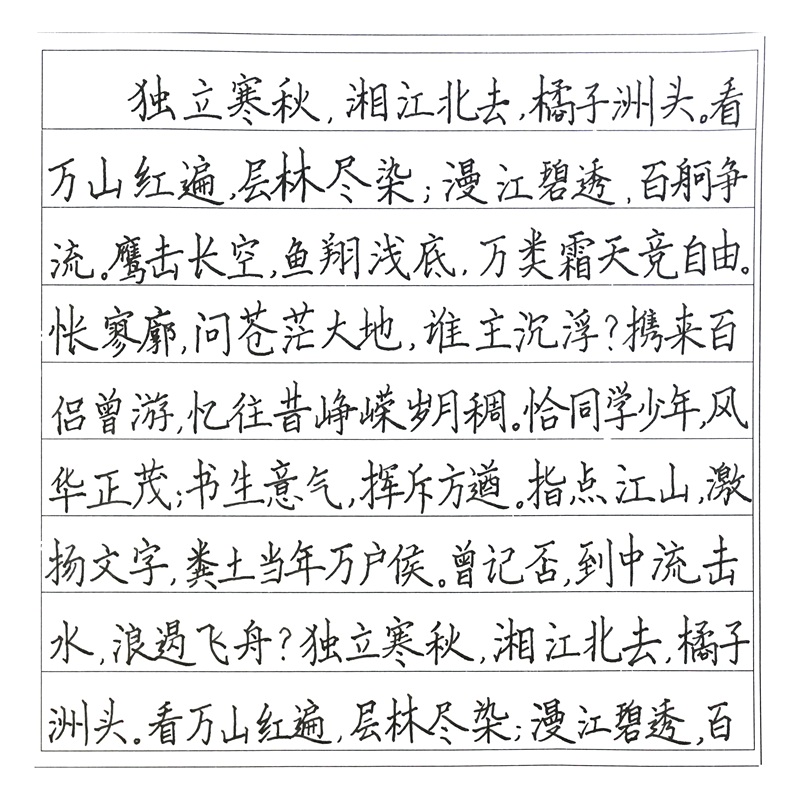 独立寒秋,湘江北去,橘子洲头。看
万山红遍,层林尽染;漫江碧透,百舸争
流。鹰击长空,鱼翔浅底,万类霜天竞自由。
怅寥廓,问苍茫大地,谁主沉浮?携来百
侣曾游,忆往昔峥嵘岁月稠。恰同学少年,风
华正茂;书生意气,挥斥方遒。指点江山,激
扬文字,粪土当年万户侯。曾记否,到中流击
水,浪遏飞舟?独立寒秋,湘江北去,橘子
洲头。看万山红遍,层林尽染;漫江碧透,百